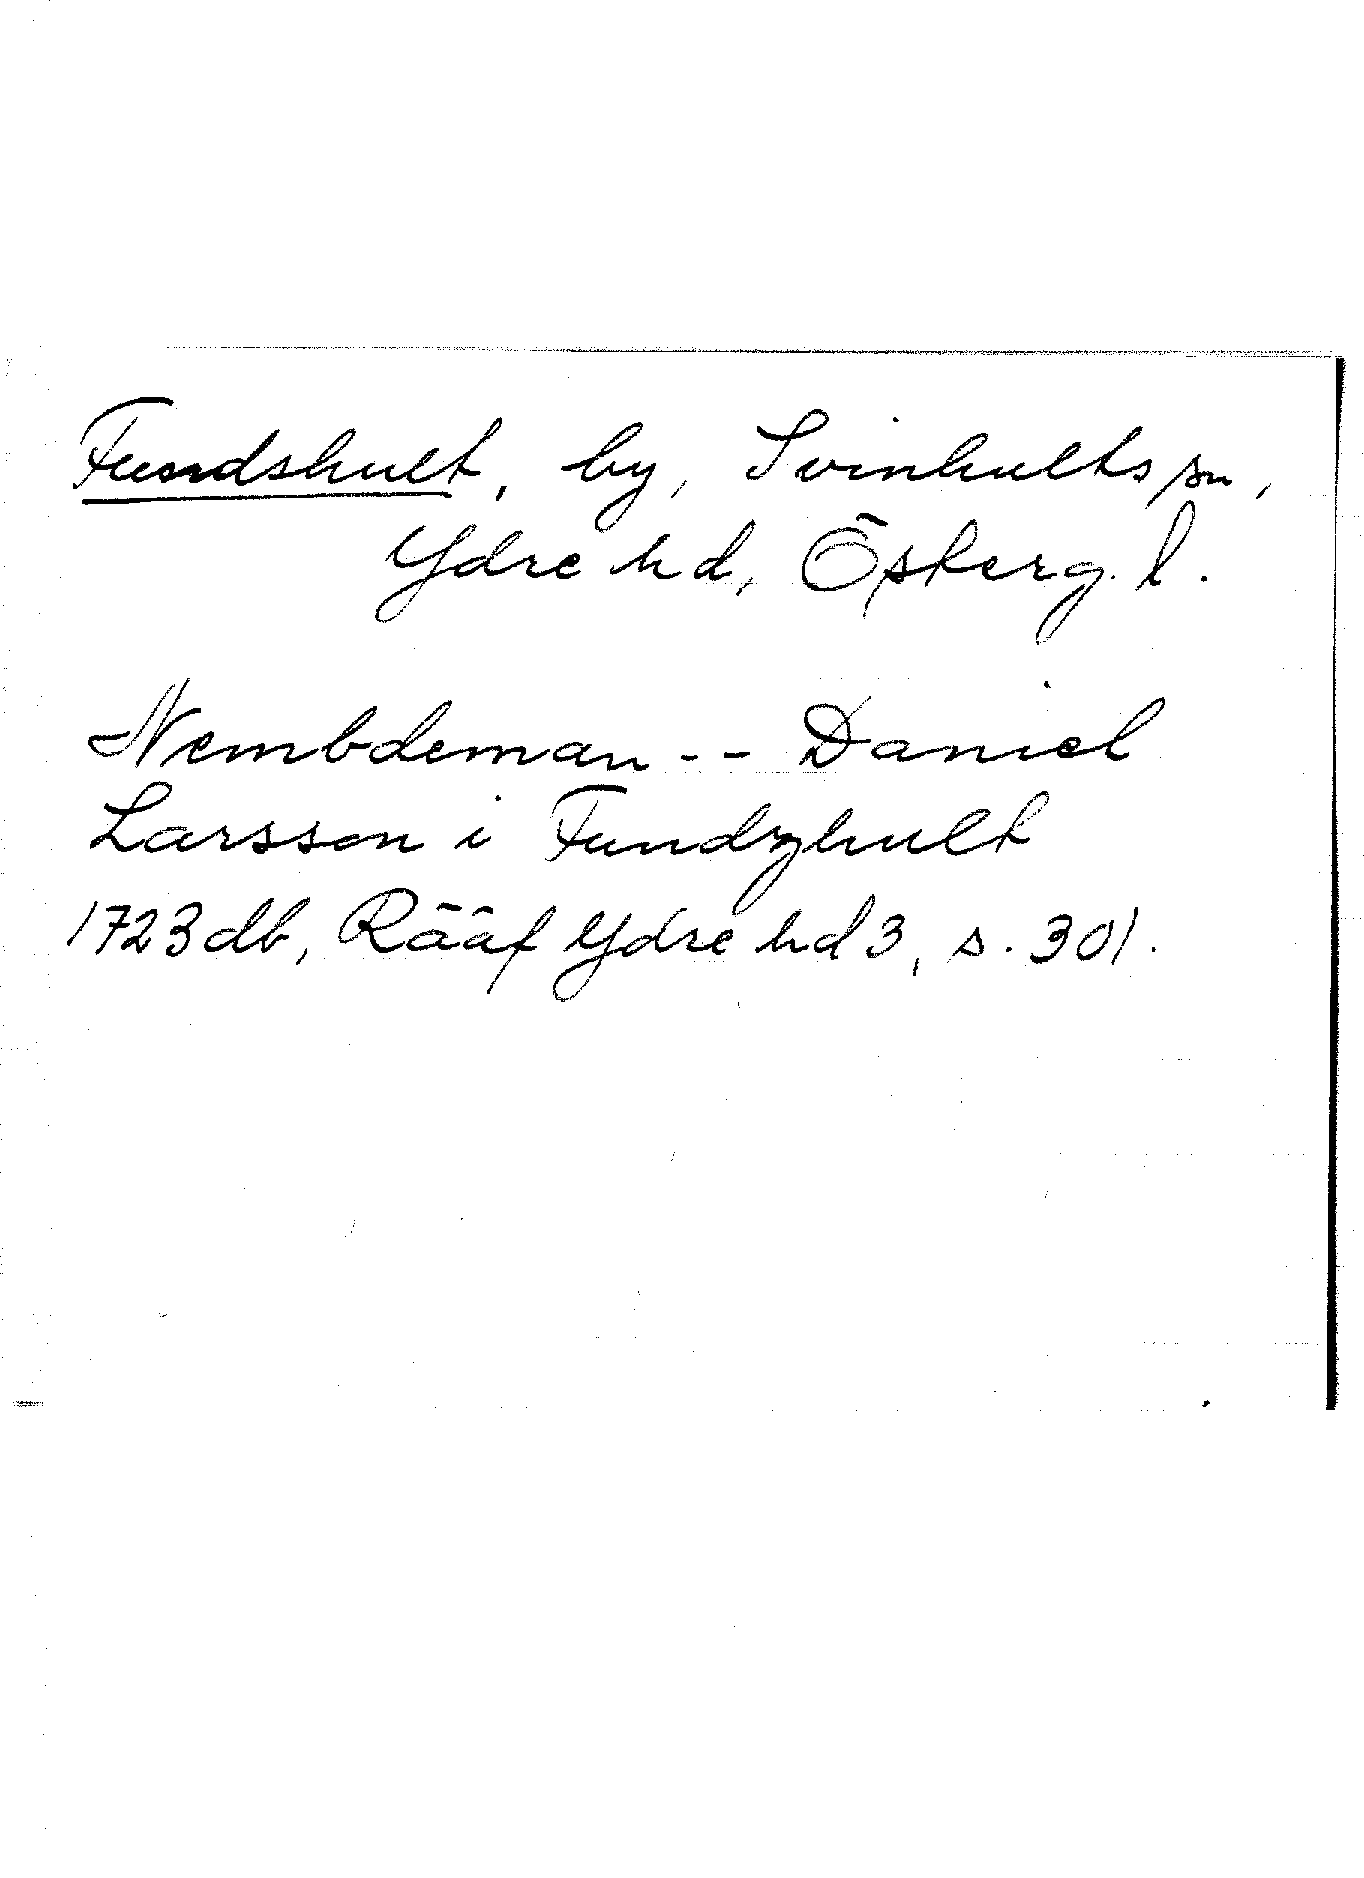 Fundshult, by, Svinhults sn,
Ydre hd, Österg. l.
Nembdeman -- Daniel
Larsson i Fundzhult
1723 db, Rääf Ydre hd 3, s. 301.